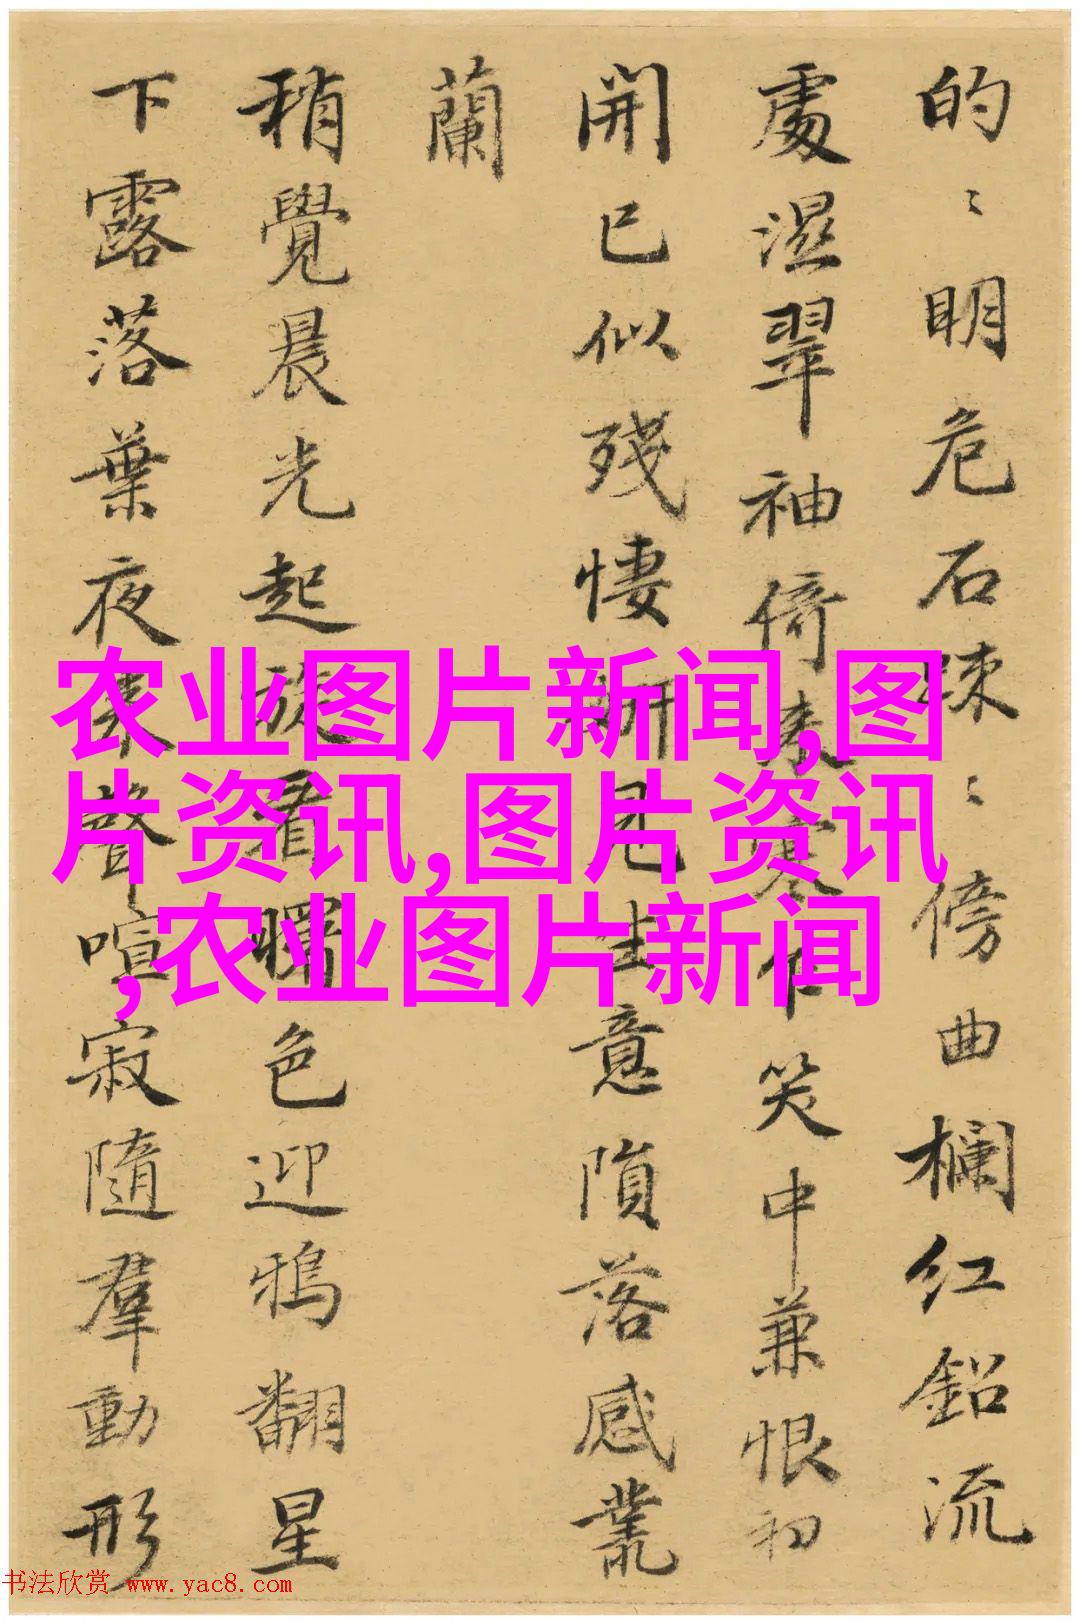 的〻明危石踈〻傍曲欄红鉛流
處濕翠袖倚來寒乍笑中兼恨初
開已似殘悽見生意隕落感叢
蘭
稍覺晨光起旋看曙色迎鴉翻星
下露落葉夜來聲喧寂隨羣動形
农业图片新闻,图
片资讯,图片资讯
,农业图片新闻
书法欣赏 www.yac8.com